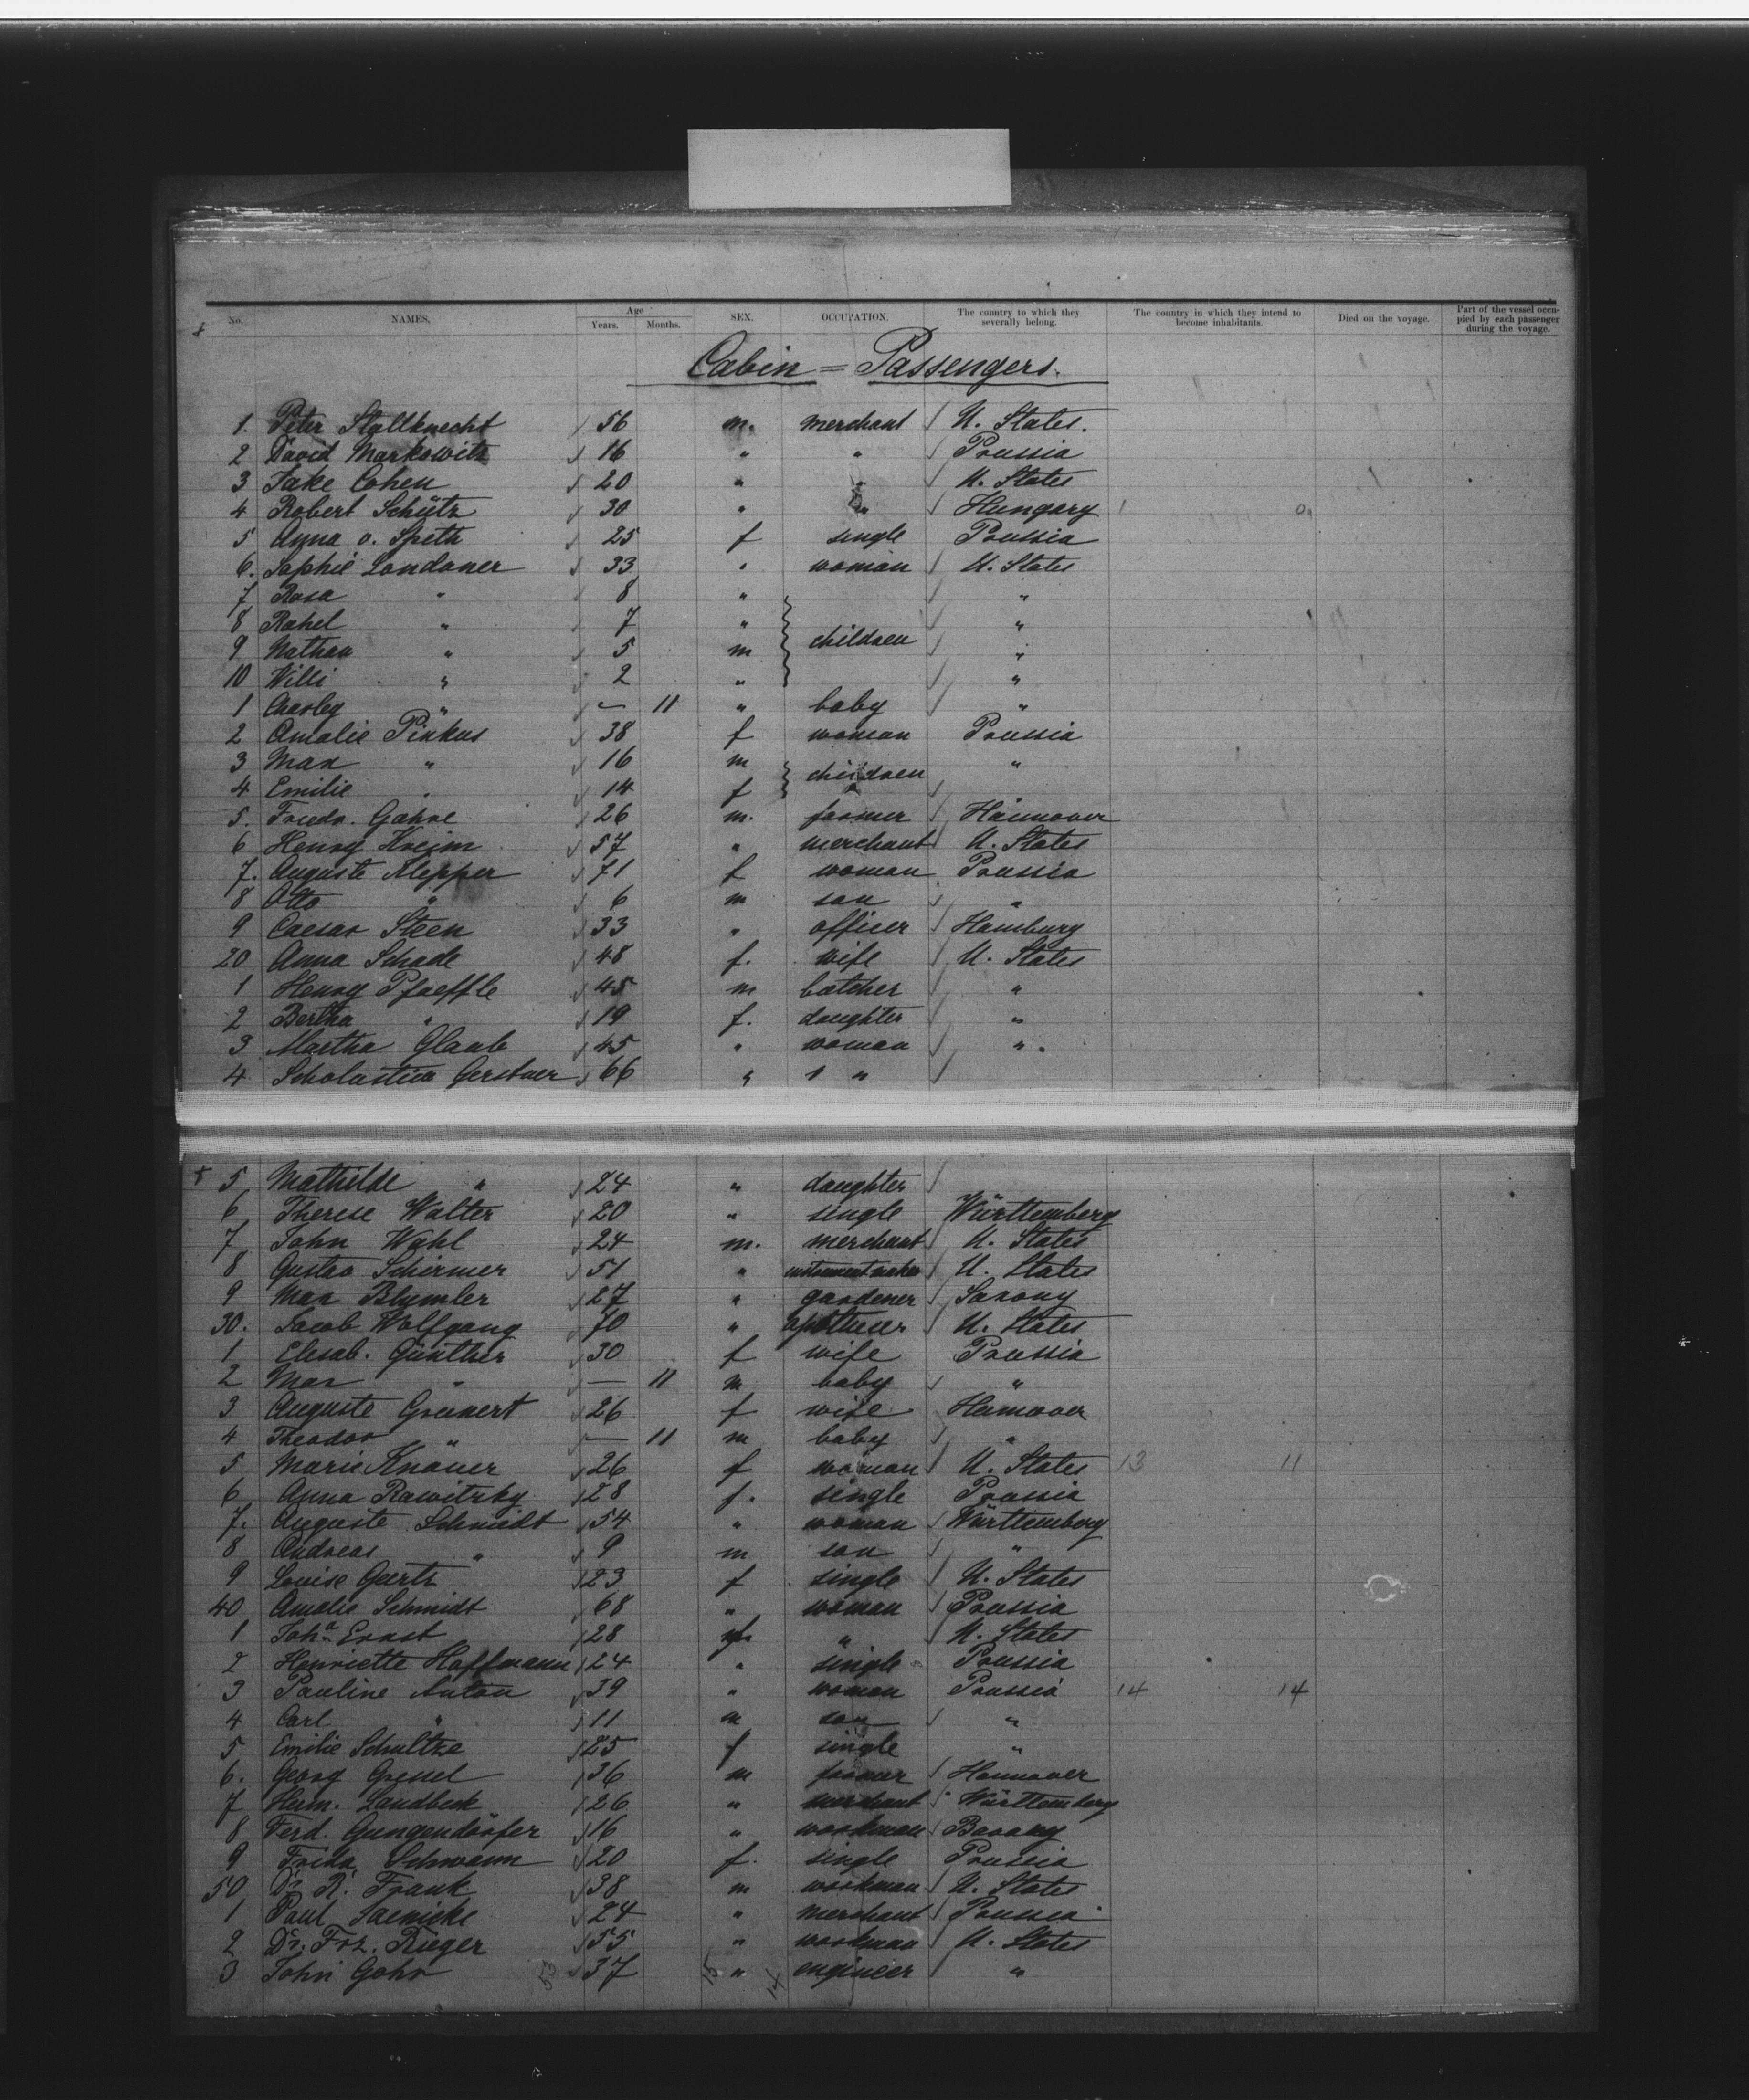 No. NAMES. Age Years. Months. SEX. OCCUPATION. The country to which they severally belong. The country in which they intend to become inhabitants. Died on the voyage. Part of the vessel occupied by each passenger during the voyage.
Cabin = Passengers.
1. Peter Stallknecht 56 m. merchant U. States.
2 David Markowitz 16 " " Prussia
3 Jake Cohen 20 " " U. States
4 Robert Schütz 30 " " Hungary 1 0
5 Anna v. Speth 25 f single Prussia
6. Sophie Landaner 33 " woman U. States
7 Rosa " 8 " "
8 Rahel " 7 " "
9 Nathan " 5 m children "
10 Willi " 2 " "
1 Charley " — 11 " baby "
2 Amalie Pinkus 38 f woman Prussia
3 Max " 16 m children "
4 Emilie " 14 f
5. Friedr. Gahre 26 m. farmer Hannover
6 Henry Kreim 57 " merchant U. States
7. Auguste Klepper 71 f woman Prussia
8 Otto " 6 m son "
9 Caesar Steen 33 " officer Hamburg
20 Anna Schade 48 f. wife U. States
1 Henry Pfaeffle 45 m butcher "
2 Bertha " 19 f. daughter "
3 Martha Glaub 45 " woman "
4 Scholastica Gerstner 66 " "
5 Mathilde " 24 " daughter
6 Therese Walter 20 " single Württemberg
7 John Wahl 24 m. merchant U. States
8 Gustav Schirmer 51 " instrument maker U. States
9 Max Blymler 27 " gardener Saxony
30. Jacob Wolfgang 70 " U. States
1 Elisab. Günther 30 f wife Prussia
2 Max " — 11 m baby "
3 Auguste Grunert 26 f wife Hannover
4 Theodor " — 11 m baby "
5 Marie Knauer 26 f woman U. States 13 11
6 Anna Rawitzky 28 f. single Prussia
7. Auguste Schmidt 54 " woman Württemberg
8 Andreas " 9 m son "
9 Louise Geertz 23 f single U. States
40 Amalie Schmidt 68 " woman Prussia
1 Joha Ernst 28 " U. States
2 Henriette Hoffmann 24 " single Prussia
3 Pauline Anton 39 " woman Prussia 14 14
4 Carl " 11 m son "
5 Emilie Schultze 25 f single "
6. Georg Gressel 36 m farmer Hannover
7 Herm. Landbeck 26 " merchant Württemberg
8 Ferd. Gungendörfer 16 " workman
9 Frida Schwamm 20 f. single Prussia
50 Dr. R. Frank 38 m workman U. States
1 Paul Jaenicke 24 " merchant Prussia
2 Dr. Frz. Rieger 55 " workman U. States
3 John Gohr 53 37 15 " 14 engineer "